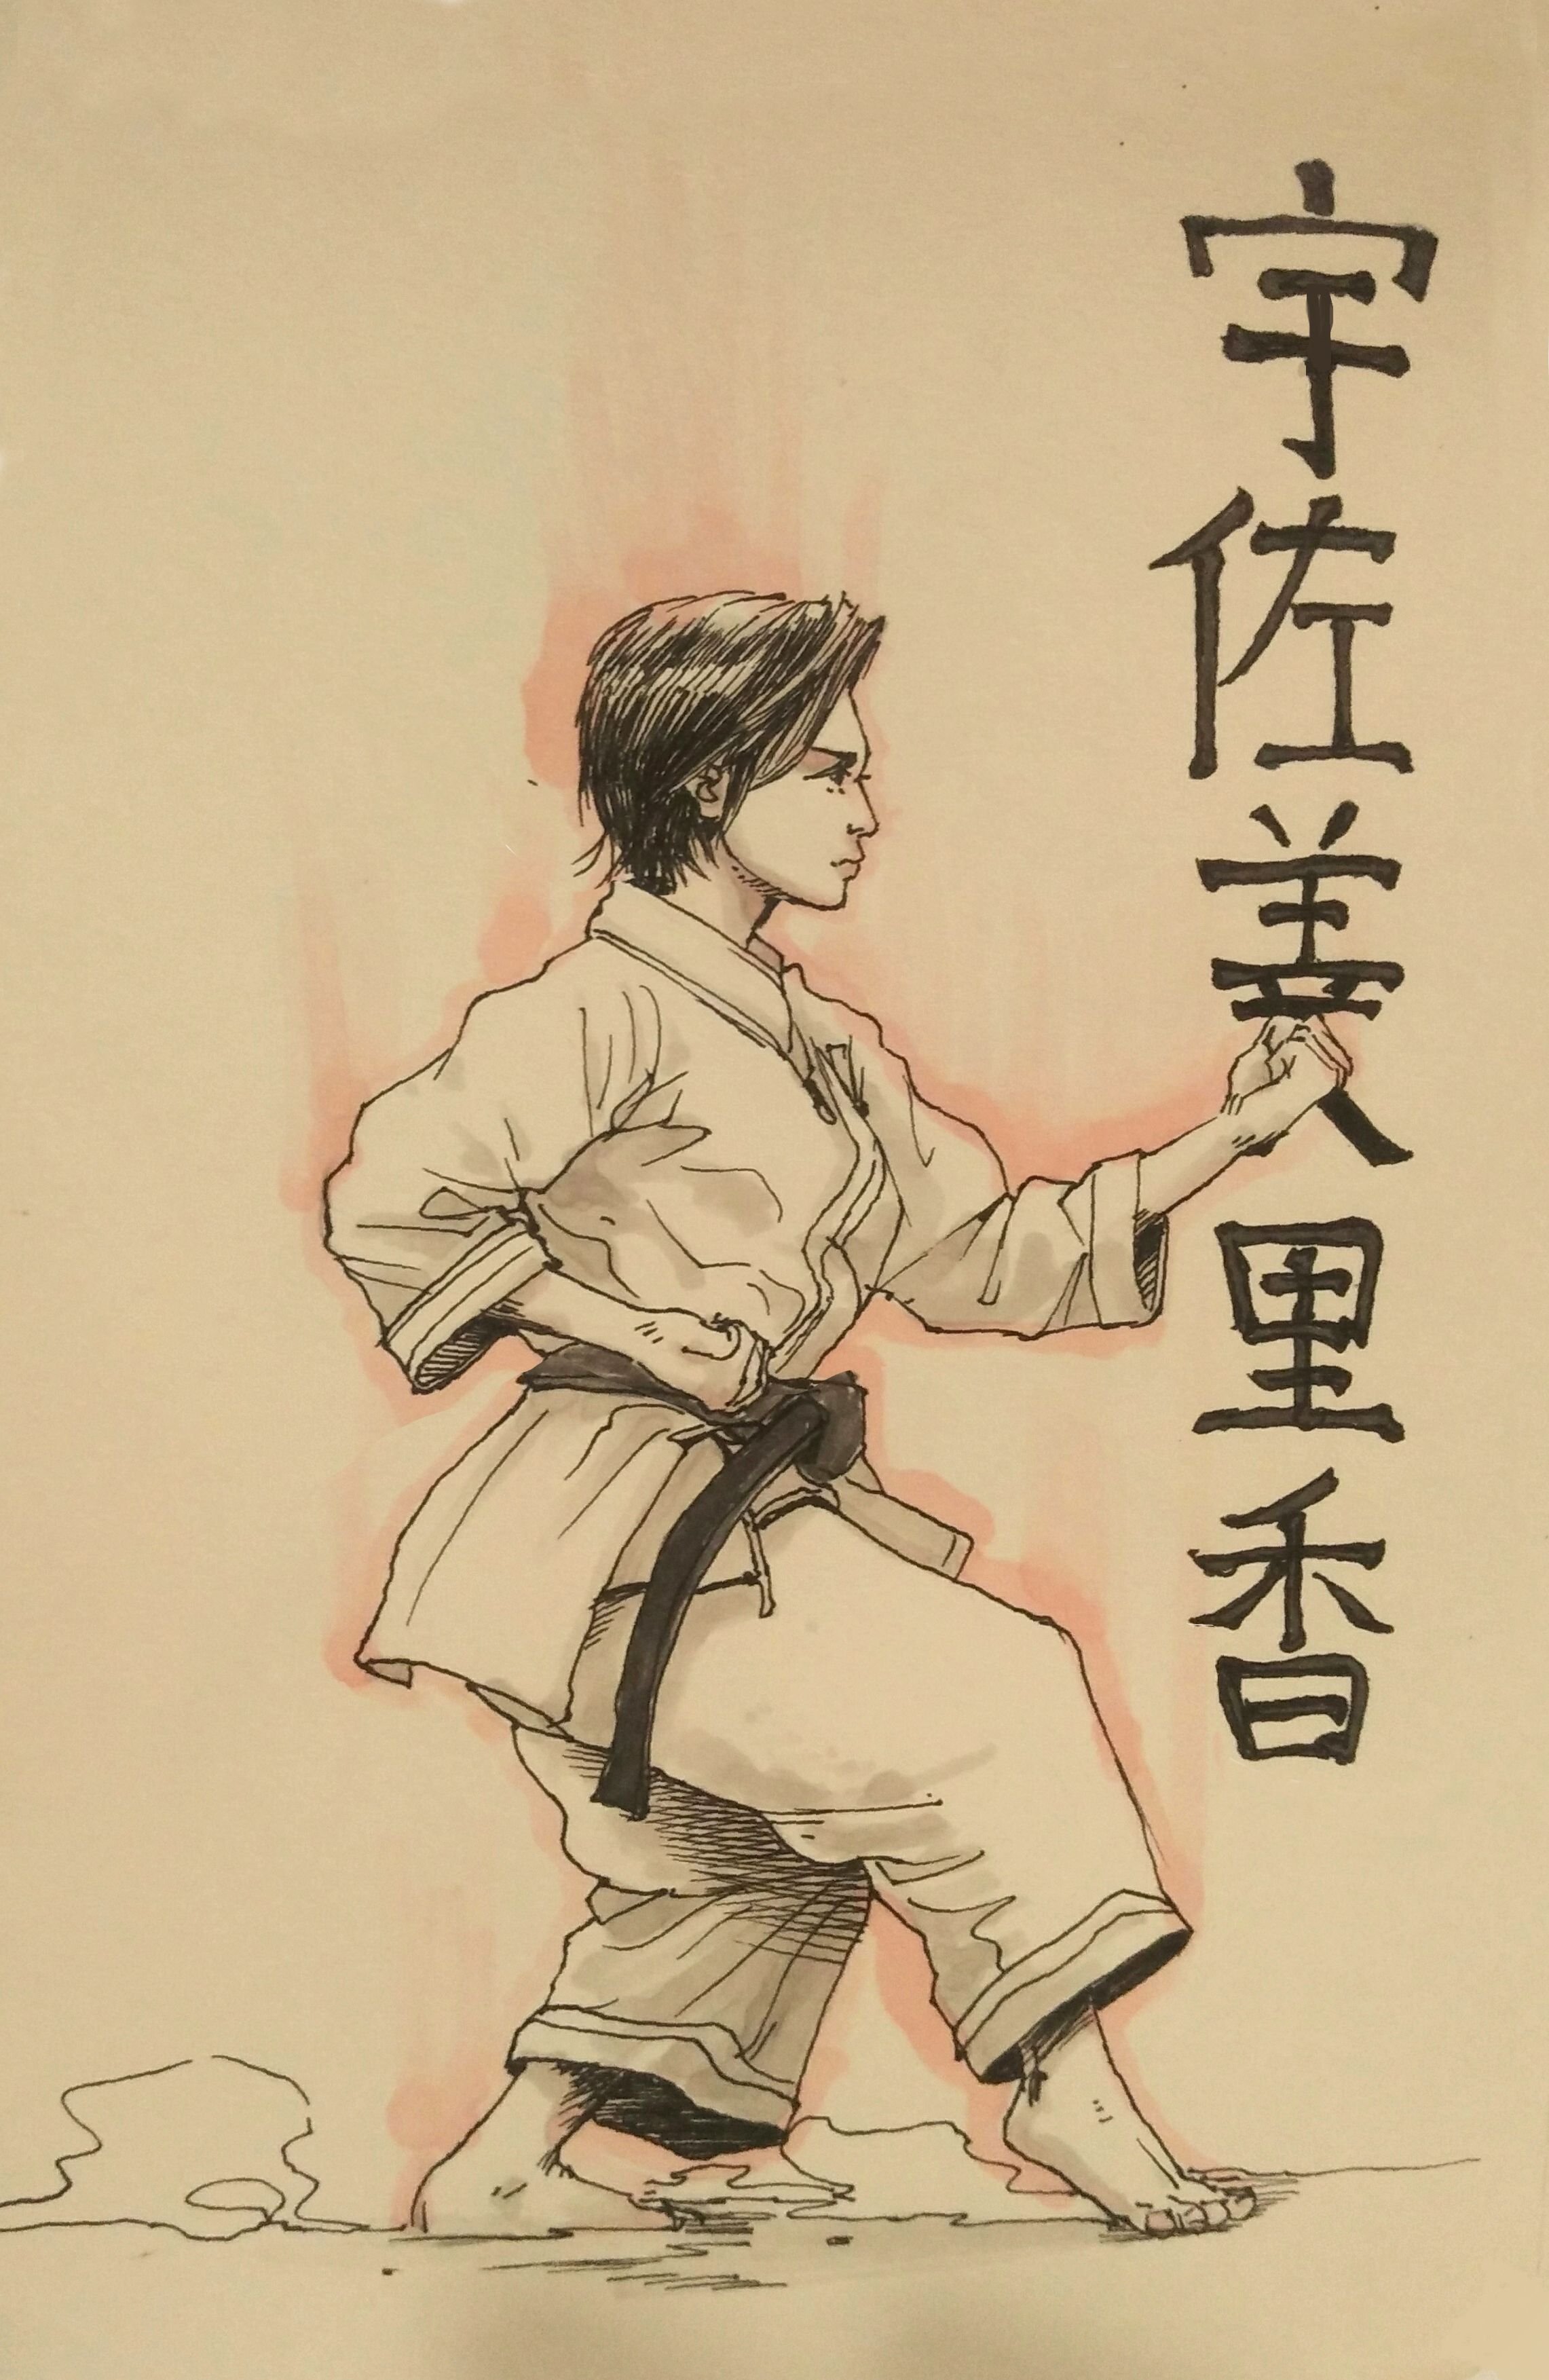 宇佐美里香